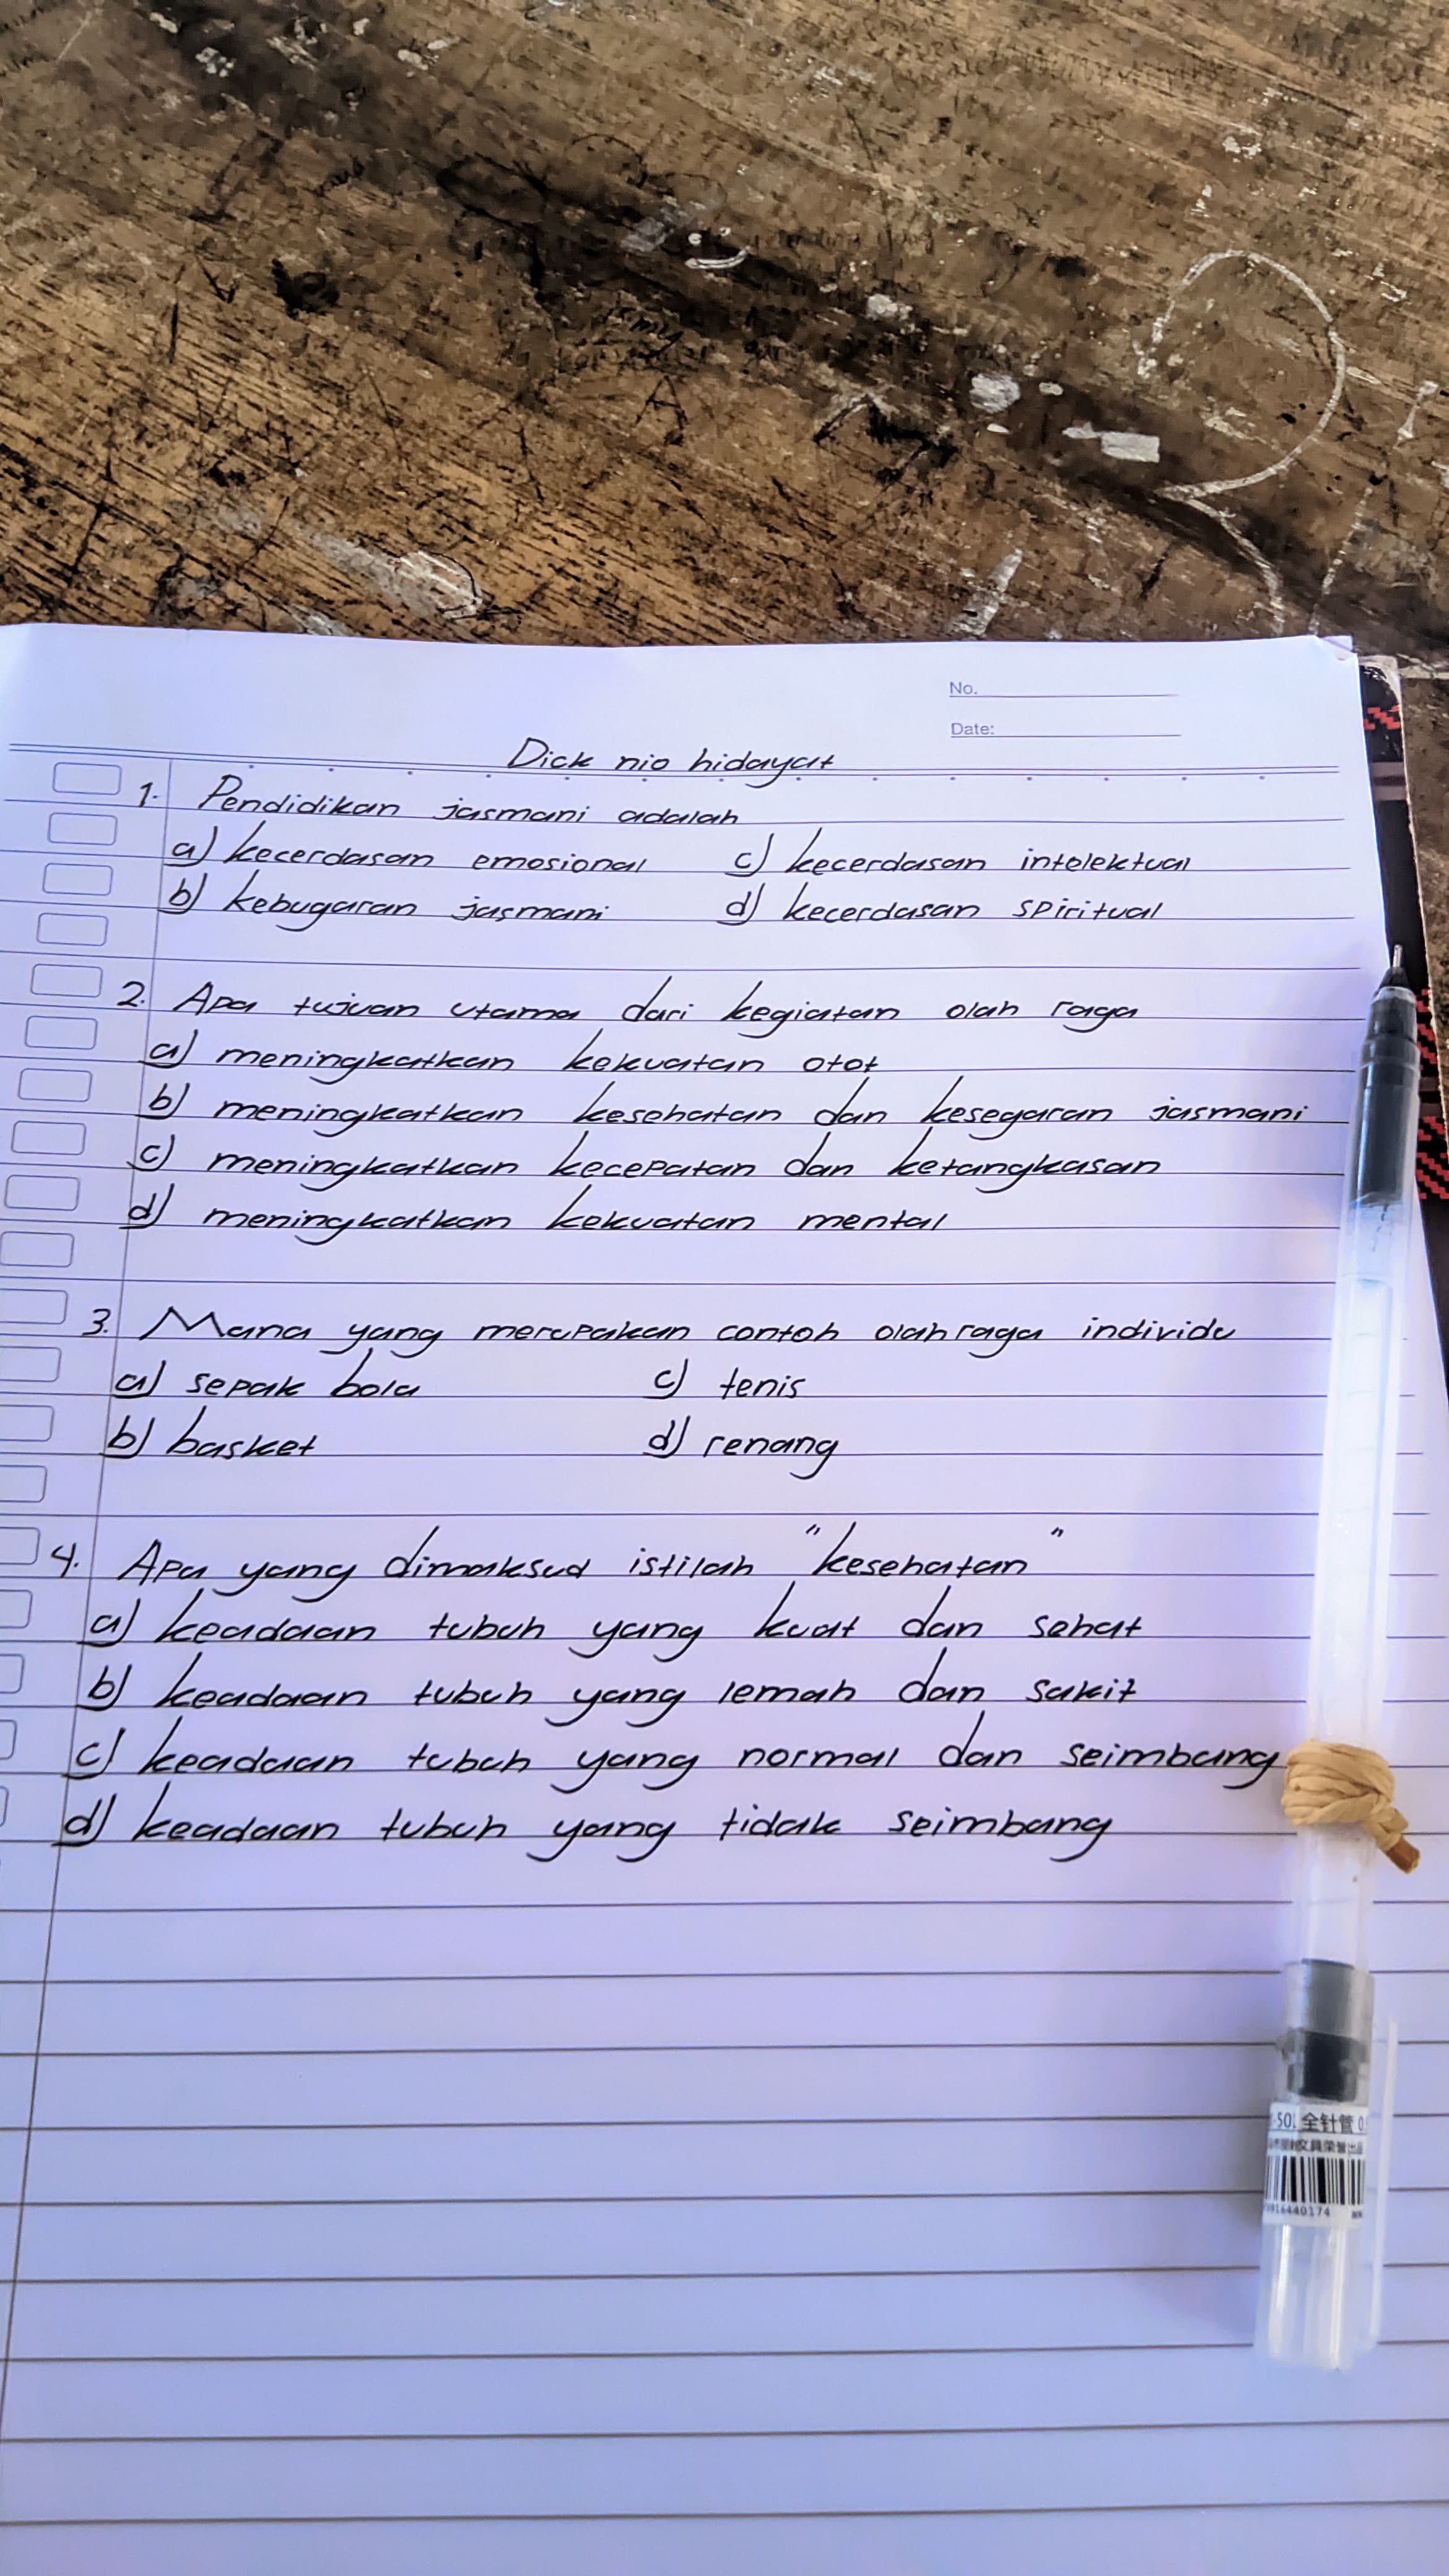 No.
Date:
Dick nio hidayat
1. Pendidikan jasmani adalah
a) kecerdasan emosional c) kecerdasan intelektual
b) kebugaran jasmani d) kecerdasan spiritual
2. Apa tujuan utama dari kegiatan olah raga
a) meningkatkan kekuatan otot
b) meningkatkan kesehatan dan kesegaran jasmani
c) meningkatkan kecepatan dan ketangkasan
d) meningkatkan kekuatan mental
3. Mana yang merupakan contoh olahraga individu
a) sepak bola c) tenis
b) basket d) renang
4. Apa yang dimaksud istilah "kesehatan"
a) keadaan tubuh yang kuat dan sehat
b) keadaan tubuh yang lemah dan sakit
c) keadaan tubuh yang normal dan seimbang
d) keadaan tubuh yang tidak seimbang
全针管